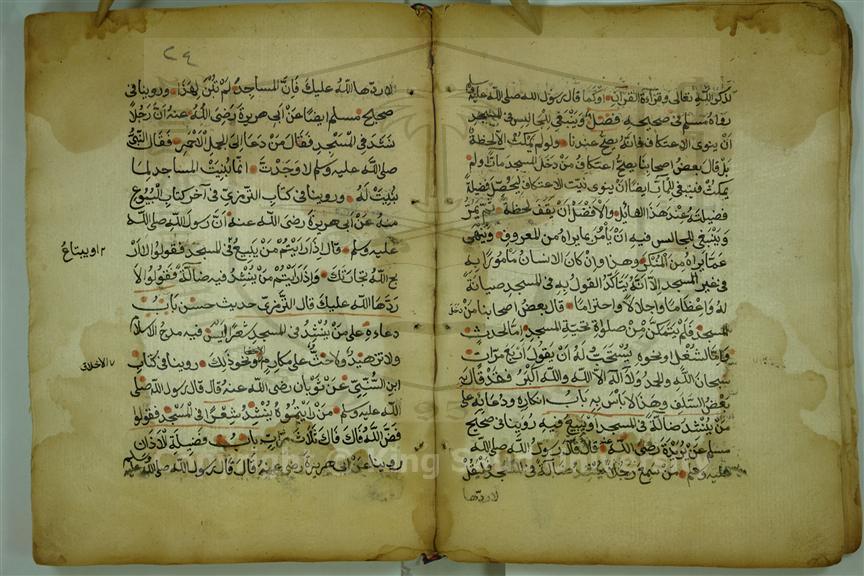 لذكر الله تعالى وقراءة القرآن أو كما قال رسول الله صلى الله عليه وسلم
رواه مسلم في صحيحه فصل وينبغي للجالس في المسجد
أن ينوي الاعتكاف فإنه يصح عندنا ولو لم يمكث إلا لحظة
بل قال بعض أصحابنا يصح اعتكاف من دخل المسجد مارا ولم
يمكث فينبغي للمار أيضا أن ينوي نية الاعتكاف ليحصل فضيلة
فضيلته عند هذا القائل والأفضل أن يقف لحظة ثم يمر
وينبغي للجالس فيه أن يأمر بما يراه من المعروف وينهى
عما يراه من المنكر وهذا وإن كان الإنسان مأمورا به
في غير المسجد إلا أنه يتأكد القول به في المسجد صيانة
له وإعظاما وإجلالا واحتراما قال بعض أصحابنا من دخل
المسجد فلم يتمكن من صلوة تحية المسجد إما لحدث
وإما لشغل أو نحوه يستحب له أن يقول أربع مرات
سبحان الله والحمد لله ولا إله إلا الله والله أكبر فقد قال به
بعض السلف وهذا لا بأس به باب إنكاره ودعائه على
من ينشد ضالة في المسجد أو يبيع فيه روينا في صحيح
مسلم عن أبي هريرة رضي الله عنه قال قال رسول الله صلى الله
عليه وسلم من سمع رجلا ينشد ضالة في المسجد فليقل
لا ردها
٢٤
لا ردها الله عليك فإن المساجد لم تبن لهذا وروينا في
صحيح مسلم أيضا عن أبي هريرة رضي الله عنه أن رجلا
نشد في المسجد فقال من دعا إلى الجمل الأحمر فقال النبي
صلى الله عليه وسلم لا وجدت إنما بنيت المساجد لما
بنيت له وروينا في كتاب الترمذي في آخر كتاب البيوع
منه عن أبي هريرة رضي الله عنه أن رسول الله صلى الله
عليه وسلم قال إذا رأيتم من يبيع في المسجد فقولوا لا أر
بح الله تجارتك وإذا رأيتم من ينشد فيه ضالة فقولوا لا
ردها الله عليك قال الترمذي حديث حسن باب
دعاءه على من ينشد في المسجد شعرا ليس فيه مدح الاسلام
ولا تزهيد ولا حث على مكارم ونحو ذلك روينا في كتاب
ابن السني عن ثوبان رضي الله عنه قال قال رسول الله صلى
الله عليه وسلم من رأيتموه ينشد شعرا في المسجد فقولوا
فض الله فاك ثلاث مرات باب فضيلة الأذان
روينا عن أبي هريرة رضي الله عنه قال قال رسول الله صلى الله عليه وسلم
أو يبتاع
الأخلاق